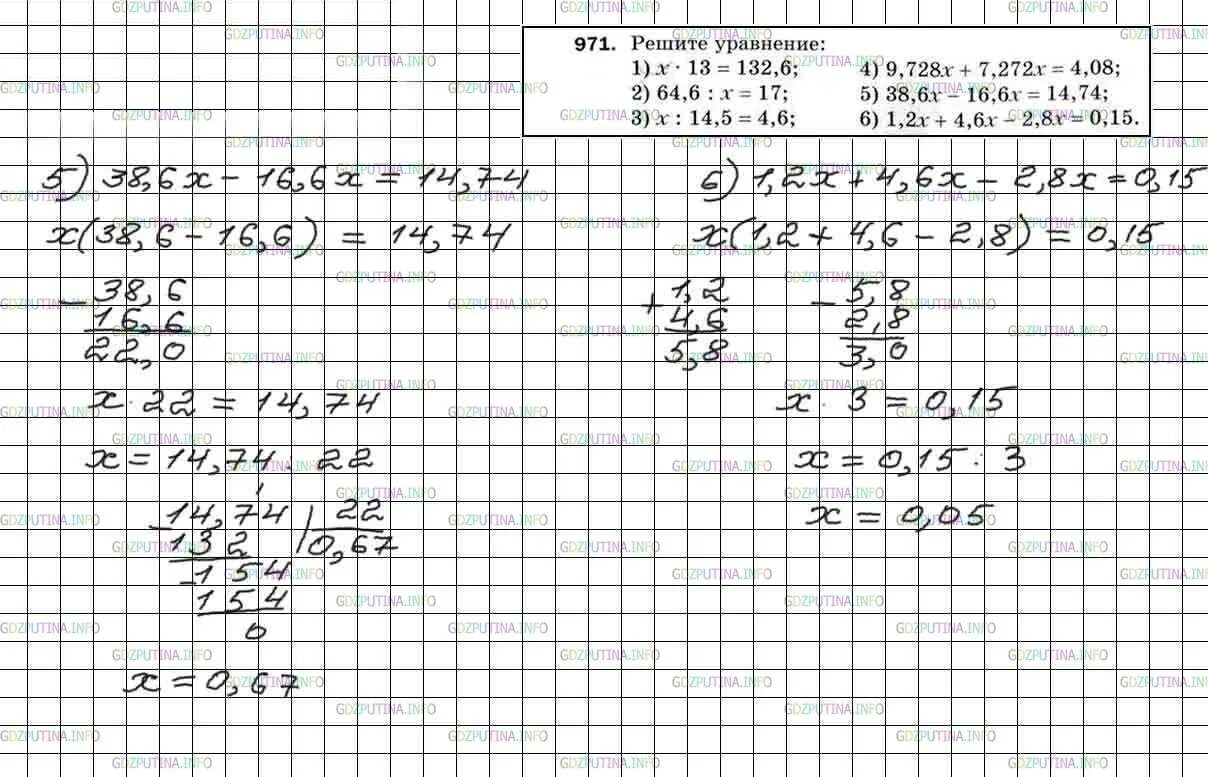 971. Решите уравнение:
1) x · 13 = 132,6;
2) 64,6 : x = 17;
3) x : 14,5 = 4,6;
4) 9,728x + 7,272x = 4,08;
5) 38,6x − 16,6x = 14,74;
6) 1,2x + 4,6x − 2,8x = 0,15.
5) 38,6x − 16,6x = 14,74
x(38,6 − 16,6) = 14,74
− 38,6
16,6
22,0
x · 22 = 14,74
x = 14,74 : 22
− 14,74 | 22
132 | 0,67
− 154
154
0
x = 0,67
6) 1,2x + 4,6x − 2,8x = 0,15
x(1,2 + 4,6 − 2,8) = 0,15
+ 1,2
4,6
5,8
− 5,8
2,8
3,0
x · 3 = 0,15
x = 0,15 : 3
x = 0,05
GDZPUTINA.INFO